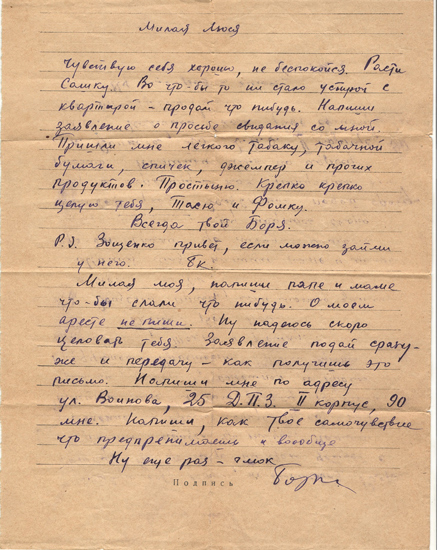 Милая Люся
Чувствую себя хорошо, не беспокойся. Расти
Сашку. Во что-бы то ни стало устрой с
квартирой – продай что нибудь. Напиши
заявление о просьбе свидания со мной.
Пришли мне лёгкого табаку, табачной
бумаги, спичек, джемпер и прочих
продуктов. Простыню. Крепко крепко
целую тебя, Талю и Фомку.
Всегда твой Боря.
P.S. Зощенко привет, если можно займи
у него. БК.
Милая моя, напиши папе и маме
что-бы слали что нибудь. О моем
аресте не пиши. Ну надеюсь скоро
целовать тебя. Заявление подай сразу-
же и передачу – как получишь это
письмо. Напиши мне по адресу
ул. Воинова, 25 Д.П.З. II корпус, 90
мне. Напиши, как твое самочувствие
что предпринимаешь и вообще
Ну еще раз – чмок
Подпись